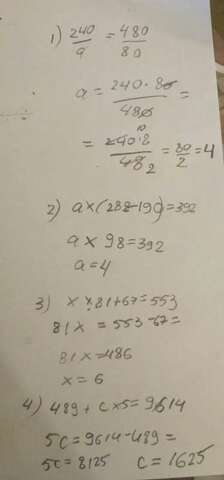 1) 240/a = 480/80
a = 240·80/480 =
= 240·8/48 2 = 80/2 = 4
2) a×(288-190)=392
a × 98=392
a=4
3) x × 81+67=553
81x = 553-67=
81x=486
x=6
4) 489 + c×5=9614
5c=9614-489=
5c=8125 c=1625